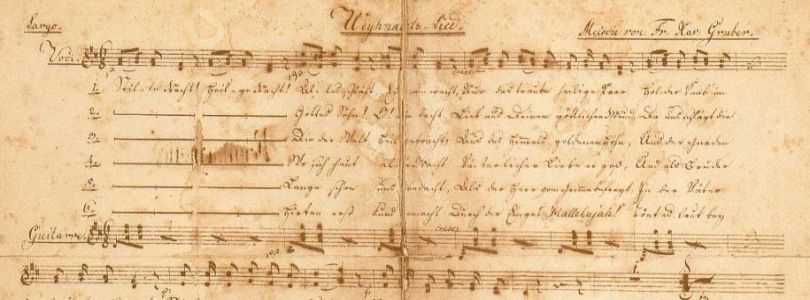 Largo. Weyhnachts-Lied. Melodie von Fr. Xav. Gruber.
Voce.
cresc:
1. Stille Nacht! Heilige Nacht! Alles schläft, Einsam wacht, Nur das traute heilige Paar. Holder Knab' im
2. Gottes Sohn! O! wie lacht Lieb' aus Deinem göttlichen Mund, Da uns schlägt die
3. Die der Welt Heil gebracht; Aus des Himmels goldenen Höhn, Aus der Gnaden
4. Wo sich heut alle Macht Väterlicher Liebe ergoß, Und als Bruder
5. Lange schon uns bedacht, Als der Herr vom Grimme befreyt, In der Väter
6. Hirten erst kund gemacht Durch der Engel Hallelujah! Tönt es laut bey
Guitarre. cresc: